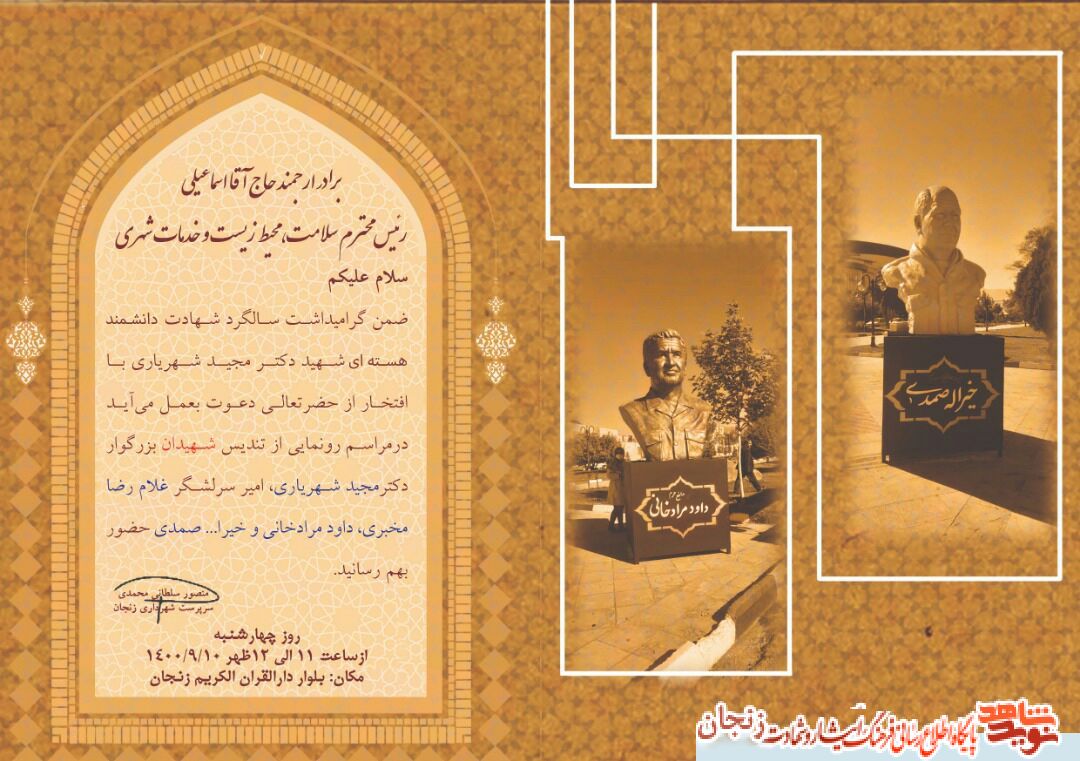 برادر ارجمند حاج آقا اسماعیلی
رئیس محترم سلامت، محیط زیست و خدمات شهری
سلام علیکم
ضمن گرامیداشت سالگرد شهادت دانشمند
هسته ای شهید دکتر مجید شهریاری با
افتخار از حضرتعالی دعوت بعمل می‌آید
درمراسم رونمایی از تندیس شهیدان بزرگوار
دکترمجید شهریاری، امیر سرلشگر غلام رضا
مخبری، داود مرادخانی و خیرا... صمدی حضور
بهم رسانید.
منصور سلطانی محمدی
سرپرست شهرداری زنجان
روز چهارشنبه
ازساعت ۱۱ الی ۱۲ظهر ۱۴۰۰/۹/۱۰
مکان: بلوار دارالقران الکریم زنجان
خیراله صمدی
مدافع حرم
داود مرادخانی
نوید شاهد
پایگاه اطلاع رسانی فرهنگ ایثار و شهادت زنجان